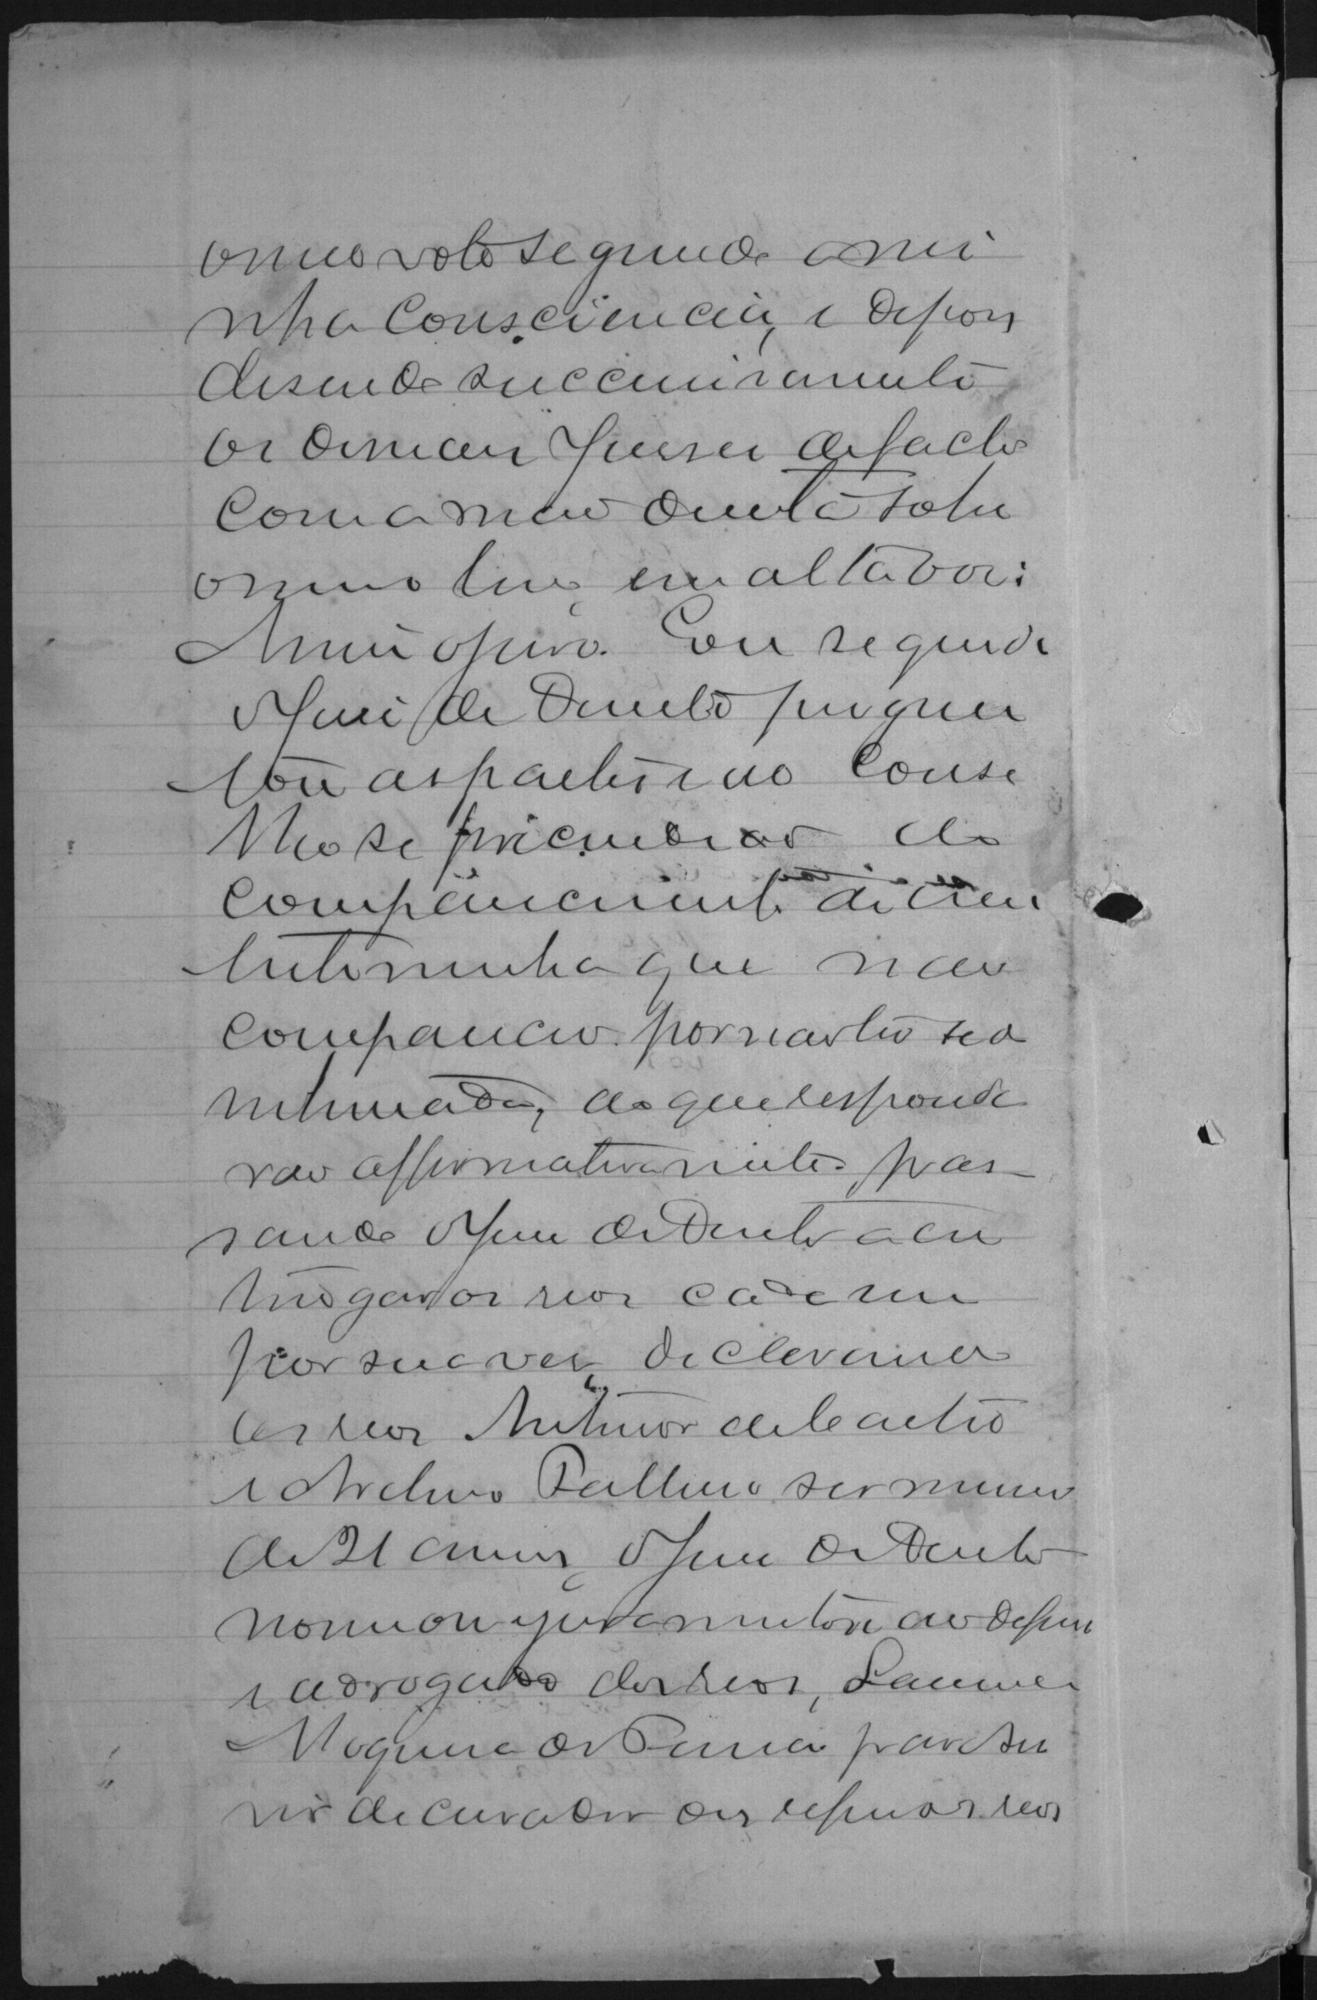 o meo voto segundo a mi
nha Consciencia, e depois
disendo successivamente
os demais Juises de facto
com a mão direita sobre
o mmo livro, em alta voz:
Assim o juro. Em seguida
o Juiz de Direito pergun
tou as partes e ao Conse
lho se prescindiao do
comparecimento de uma
testemunha que não
compareceu por não ter sido
intimada, ao que responde
rão affirmativamente. pas-
sando o Juiz de Direito a in
terrogar os reos cada um
por sua vez, declararam
os reos Antonio de Castro
e Avelino Pallino ser menor
de 21 annos, o Juiz de Direito
nomeou e juramentou ao defensor
e advogado dos reos,
Nogueira de para ser
vir de curador dos referidos reos